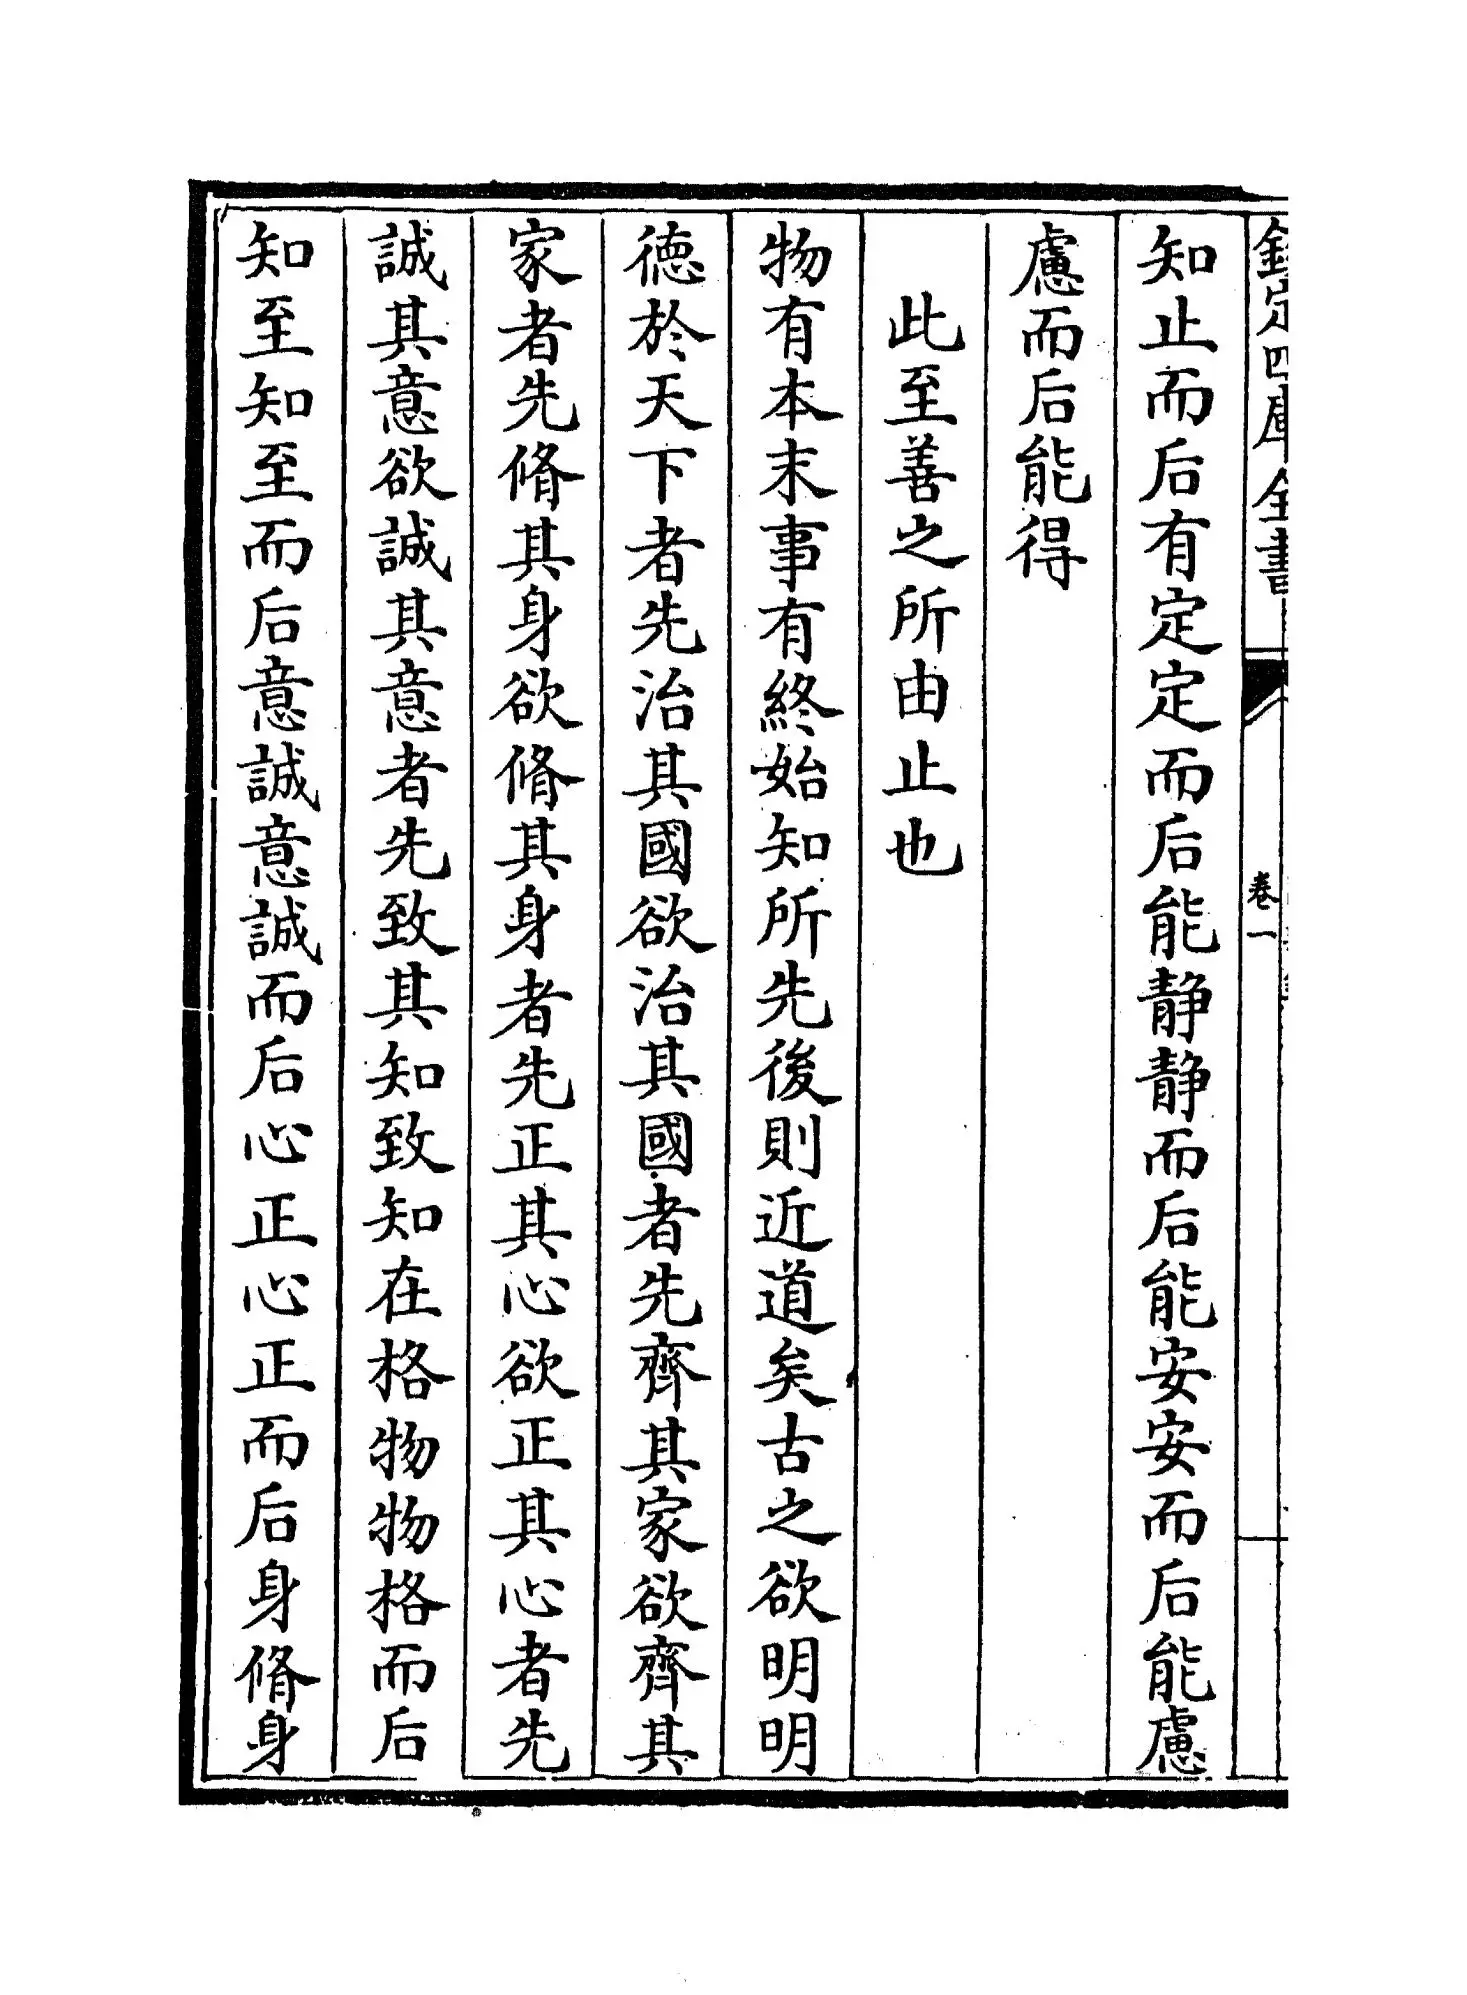 欽定四庫全書
卷一
知止而后有定定而后能静静而后能安安而后能慮
慮而后能得
此至善之所由止也
物有本末事有終始知所先後則近道矣古之欲明明
徳於天下者先治其國欲治其國者先齊其家欲齊其
家者先脩其身欲脩其身者先正其心欲正其心者先
誠其意欲誠其意者先致其知致知在格物物格而后
知至知至而后意誠意誠而后心正心正而后身脩身